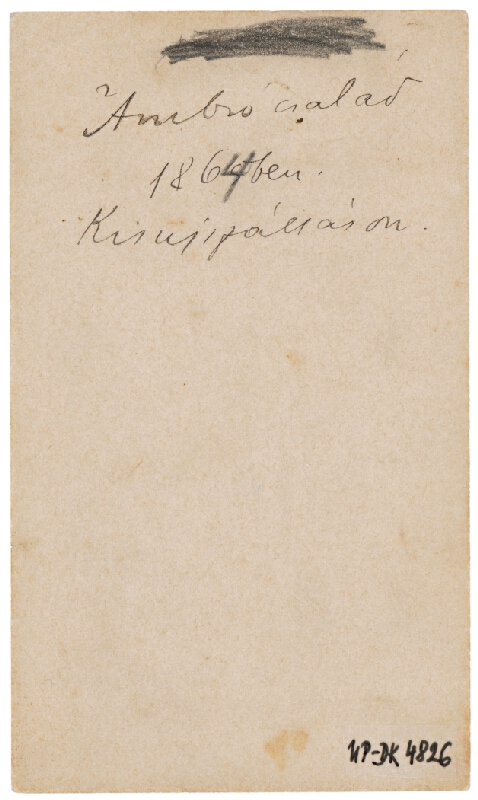 Ambró család
1864ben.
Kisujszálláson.
UP-DK 4826